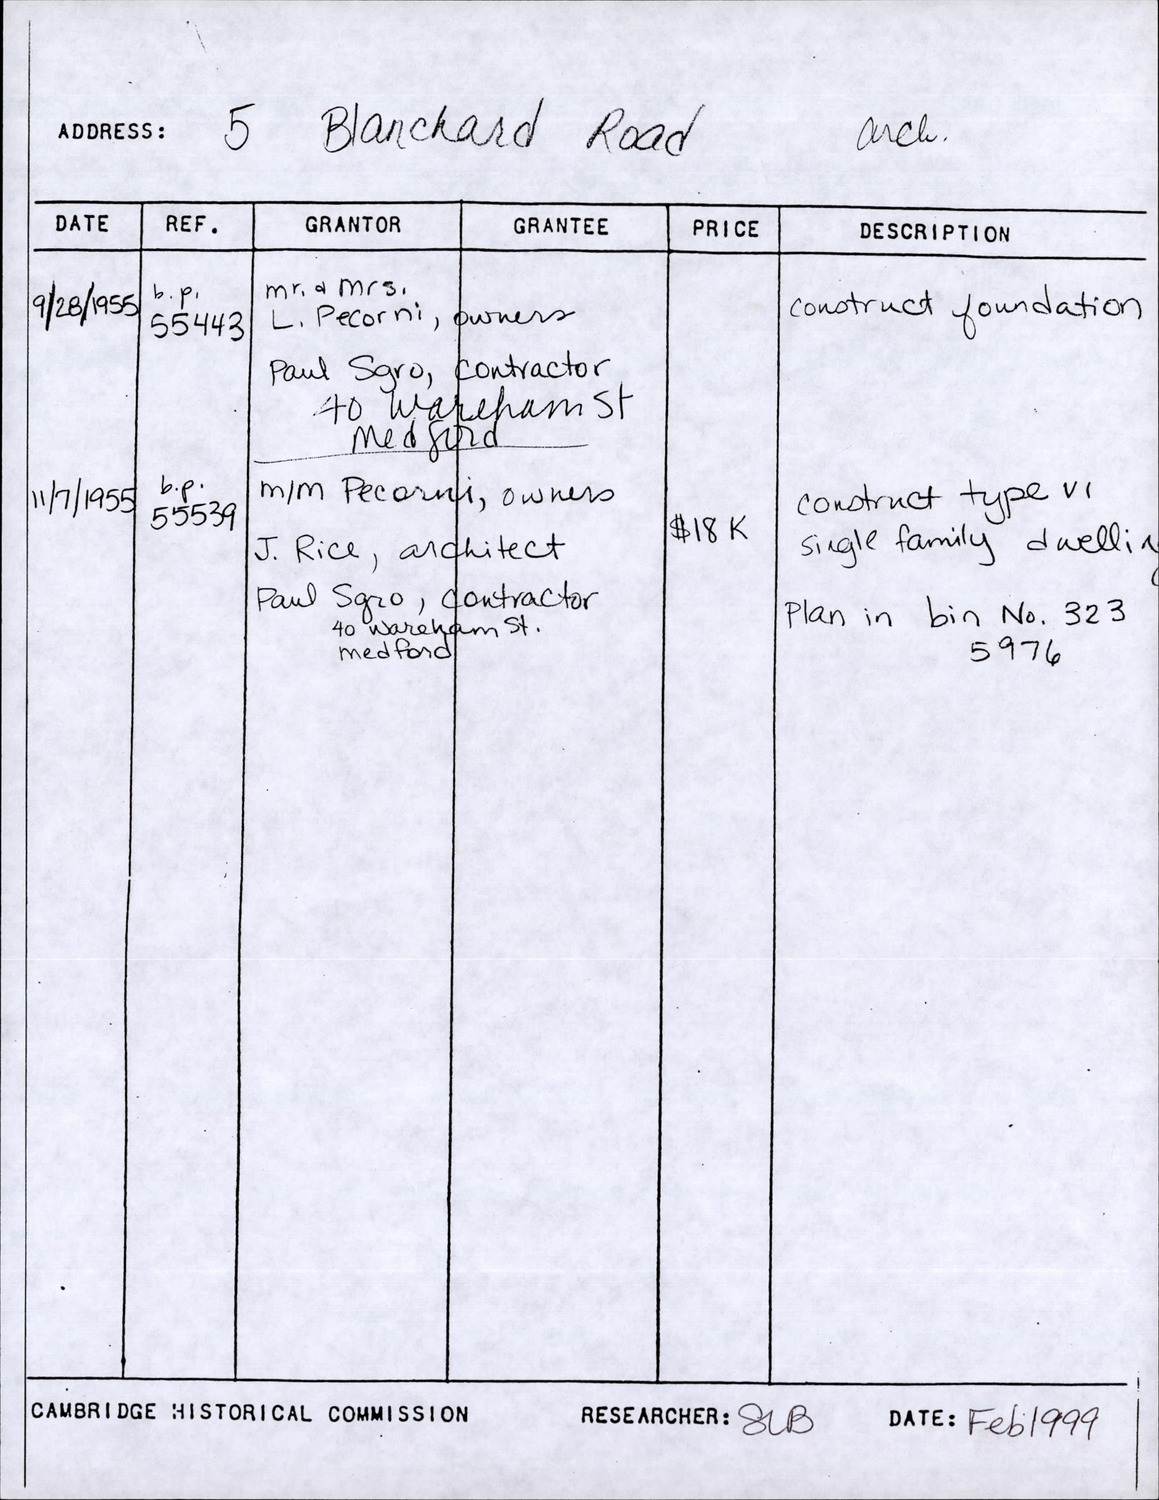 ADDRESS: 5 Blanchard Road arch.
DATE REF. GRANTOR GRANTEE PRICE DESCRIPTION
9/28/1955 b.p. 55443
mr. & mrs.
L. Pecorni, owners
construct foundation
Paul Sgro, contractor
40 Wareham St
Medford
11/7/1955 b.p. 55539
m/m Pecorni, owners
$18K
construct type VI
single family dwelling
J. Rice, architect
Paul Sgro, contractor
40 Wareham St.
medford
Plan in bin No. 323
5976
CAMBRIDGE HISTORICAL COMMISSION RESEARCHER: SLB DATE: Feb 1999